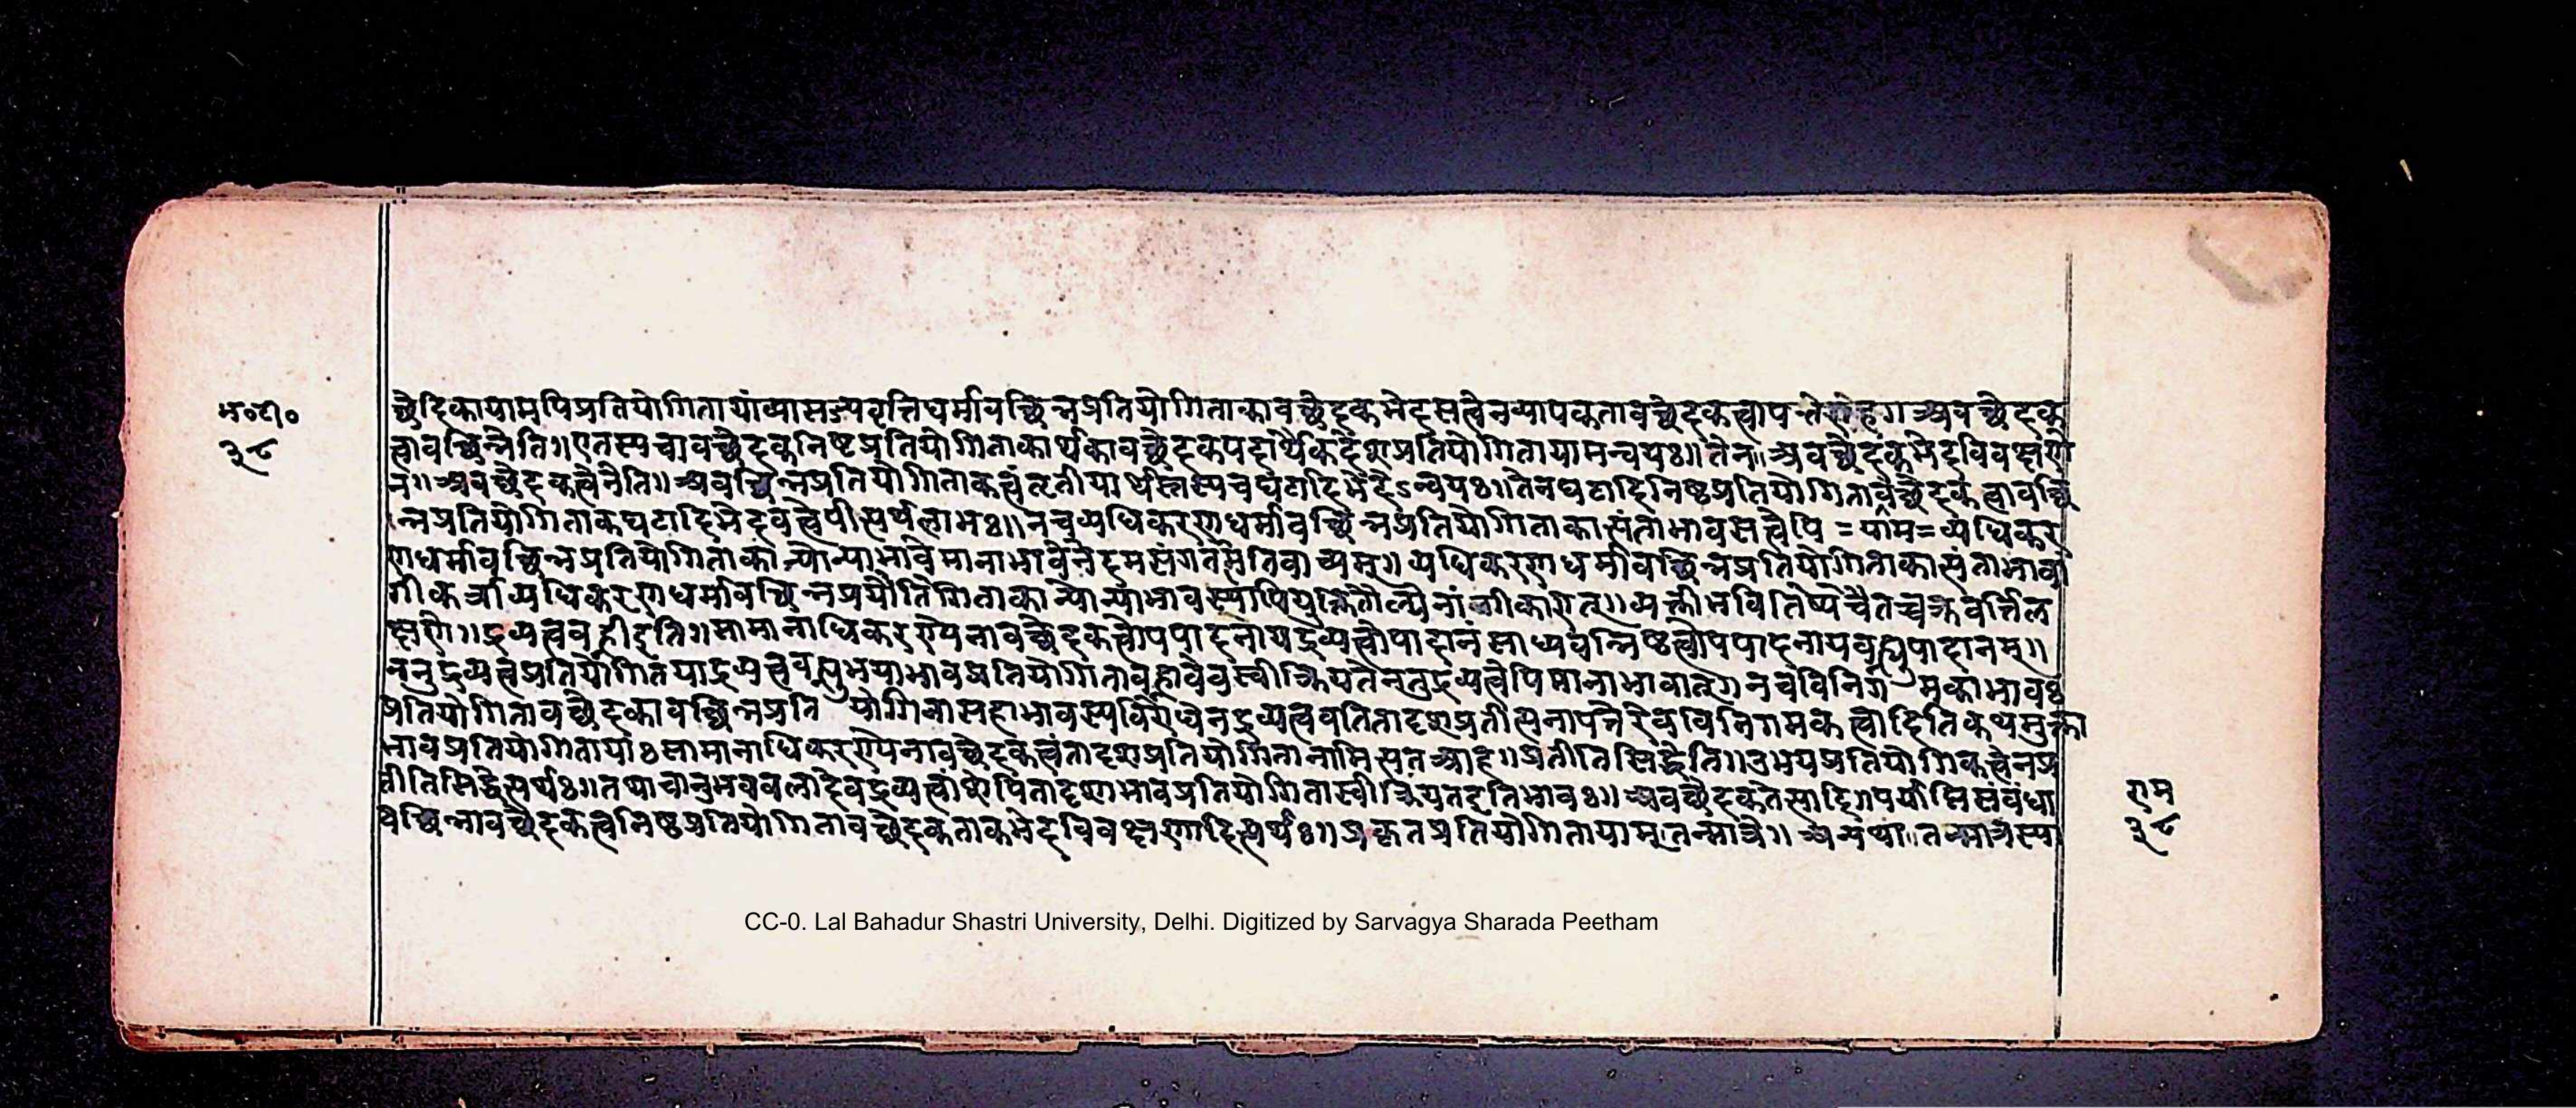 म॰टी॰
३८
च्छेदिकायामपिप्रतियोगितायांव्यासज्यवृत्तिधर्मावच्छिन्नप्रतियोगिताकावच्छेदकभेदसत्वेनव्यापकतावच्छेदकत्वापत्तेराह॥अवच्छेदक
त्वावच्छिन्नेति॥एतस्यचावच्छेदकनिष्टप्रतियोगिताकार्थकावच्छेदकपदार्थैकदेशप्रतियोगितायामन्वयः॥तेन॥अवच्छेदकभेदविवक्षणे
न॥अवच्छेदकत्वेनेति॥अवच्छिन्नप्रतियोगिताकत्वंतृतीयार्थस्तस्यचघटादिभेदेऽन्वयः॥तेनघटादिनिष्ठप्रतियोगितावच्छेदकत्वावच्छि
न्नप्रतियोगिताकघटादिभेदवत्त्वेपीत्यर्थलाभः॥नचव्यधिकरणधर्मावच्छिन्नप्रतियोगिताकात्यंताभावसत्त्वेपि =याम= व्यधिकर
णधर्मावच्छिन्नप्रतियोगिताकान्योन्याभावेमानाभावेनेदमसंगतमितिवाच्यम्॥व्यधिकरणधर्मावच्छिन्नप्रतियोगिताकात्यंताभावां
गीकर्त्राव्यधिकरणधर्मावच्छिन्नप्रयोतिगिताकान्योन्याभावस्यापियुक्तितौल्येनांगीकारात्॥व्यक्तीभवितिष्यचैतच्चक्रवर्त्तिल
क्षणे॥द्रव्यत्ववह्नीइति॥सामानाधिकरण्येनावच्छेदकत्वोपपादनायद्रव्यत्वोपादानंसाध्यवन्निष्ठत्वोपपादनायवह्न्युपादानम्॥
ननुद्रव्यत्वंप्रतियोगितयाद्रव्यत्ववह्न्युभयाभावप्रतियोगितावह्नावेवस्वीक्रियतेनतुद्रव्यत्वेपिमानाभावात्॥नचविनिगमकाभावः
प्रतियोगितावच्छेदकावच्छिन्नप्रति योगिनासहाभावस्यविरोधेनद्रव्यत्ववतितादृशप्रतीत्यनापत्तेरेवविनिगमकत्वादितिकथमुक्ता
भावप्रतियोगितायाःसामानाधिकरण्येनावच्छेदकत्वंतादृशप्रतियोगितानामित्यतआह॥प्रतीतिसिद्धेति॥उभयप्रतियोगिकत्वेनप्र
तीतिसिद्धेत्यर्थः॥तथाचानुभवबलादेवद्रव्यत्वांशेपितादृशाभावप्रतियोगितास्वीक्रियतइतिभावः॥अवच्छेदकतेत्यादि॥पर्याप्तिसंबंधा
वच्छिन्नावच्छेदकत्वनिष्ठप्रतियोगितावच्छेदकताकभेदविवक्षणादित्यर्थः॥प्रकृतप्रतियोगितायाम्॥तन्मात्रे॥अन्यथा॥तन्मात्रस्या
राम
३८
CC-0. Lal Bahadur Shastri University, Delhi. Digitized by Sarvagya Sharada Peetham